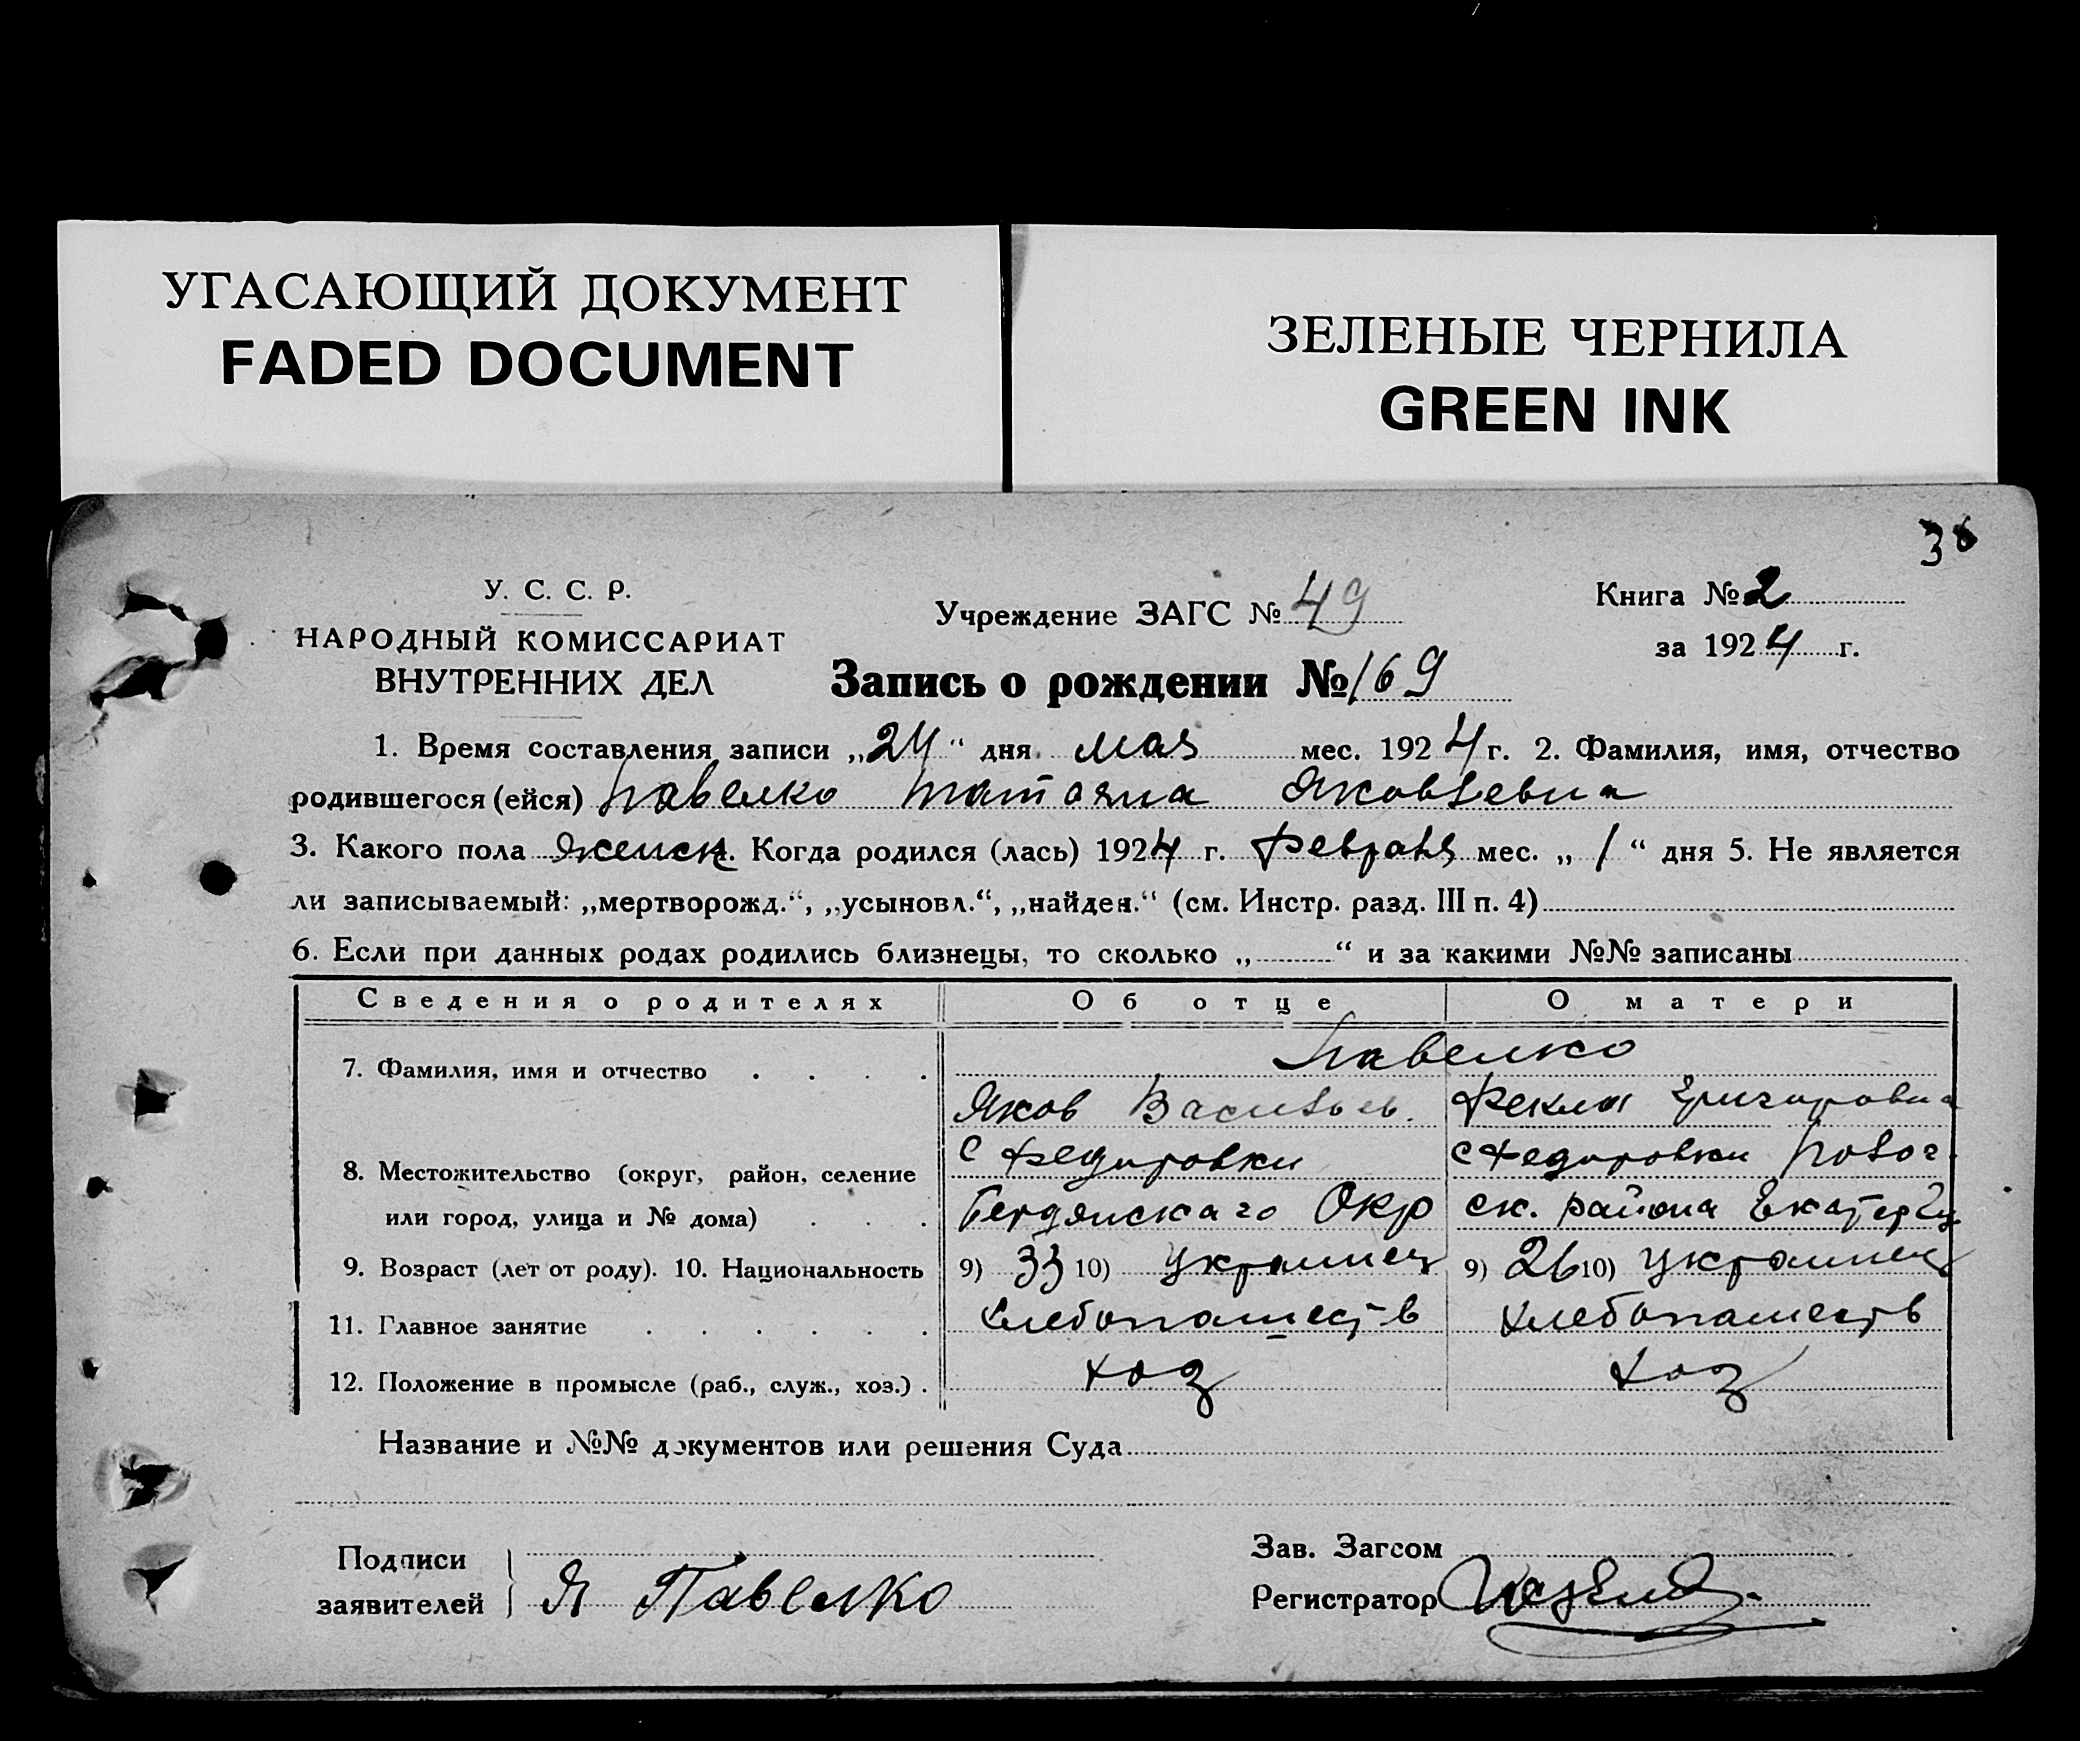 УГАСАЮЩИЙ ДОКУМЕНТ
FADED DOCUMENT
ЗЕЛЕНЫЕ ЧЕРНИЛА
GREEN INK
38
У. С. С. Р.
НАРОДНЫЙ КОМИССАРИАТ
ВНУТРЕННИХ ДЕЛ
Учреждение ЗАГС № 49
Книга № 2
за 1924 г.
Запись о рождении № 169
1. Время составления записи „24“ дня мая мес. 1924 г. 2. Фамилия, имя, отчество
родившегося (ейся) Павелко Татояна Яковьевна
3. Какого пола женск. Когда родился (лась) 1924 г. февраля мес. „1“ дня 5. Не является
ли записываемый: „мертворожд.“, „усыновл.“, „найден.“ (см. Инстр. разд. III п. 4)
6. Если при данных родах родились близнецы, то сколько „ “ и за какими №№ записаны
Сведения о родителях Об отце О матери
7. Фамилия, имя и отчество Павелко
Яков Васильев. Фекла Григоровна
с Федоровки с Федоровки Новог.
8. Местожительство (округ, район, селение
или город, улица и № дома) Бердянскаго Окр ск. района
9. Возраст (лет от роду). 10. Национальность 9) 33 10) Украинец 9) 26 10) Украинец
11. Главное занятие хлебопашеств хлебопашеств
12. Положение в промысле (раб., служ., хоз.) хоз хоз
Название и №№ документов или решения Суда
Подписи
заявителей Я Павелко
Зав. Загсом
Регистратор